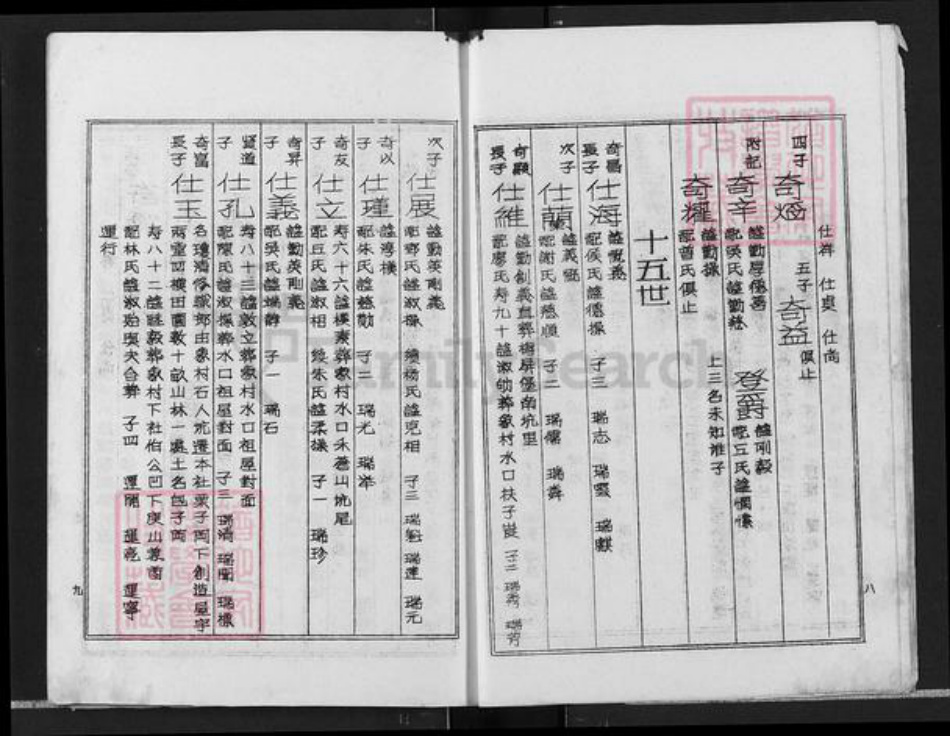 仕祥 仕貞 仕尚
四子 奇𤊹 五子 奇益 俱止
附記 奇辛 諡勤厚德善 配吳氏諡勤慈 登爵 諡剛毅 配丘氏諡惆懷
奇耀 諡勤操 配曾氏俱止 上三名未知誰子
十五世
奇昌 長子 仕海 諡悅義 配侯氏諡德操 子三 瑞志 瑞賢 瑞麒
次子 仕蘭 諡義寬 配謝氏諡慈順 子二 瑞儒 瑞舜
奇顯 長子 仕維 諡勤創義直葬梅屏堡角坑里
配廖氏寿九十諡淑勤葬象村水口扶子崀 子二 瑞秀 瑞芳
次子 仕展 諡勤英剛義
配鄭氏諡淑操 續楊氏諡克相 子三 瑞魁 瑞連 瑞元
奇以 子 仕瑾 諡湾樸
配朱氏諡慈勤 子二 瑞光 瑞
奇友 子 仕立 寿六十六諡樸素葬象村水口禾蒼山坑尾
配丘氏諡淑相 續朱氏諡柔嬺 子一 瑞珍
奇昇 子 仕義 諡勤英剛義
配吳氏諡端靜 子一 瑞石
賢道 子 仕孔 寿八十三諡敦立葬象村水口祖屋對面
配陳氏諡淑操葬水口祖屋對面 子三 瑞清 瑞聞 瑞標
奇富 長子 仕玉 名瓊清俗號郎由象村石人坑遷本社栗子岡下創造屋宇
兩重四橫田園數十畝山林一處土名包子岡
寿八十二諡毅葬象村下社伯公凹下庚山兼酉
配林氏諡淑貽與夫合葬 子四 運開 運亮 運寧
運行
八
九
FamilySearch